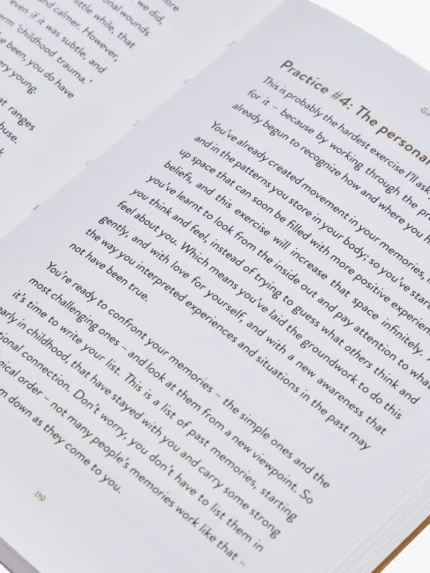 we did,
onal wounds
little while, that
nd calmer. However,
even if it was subtle, and
erm 'childhood trauma,'
been, you do have
ery young.
at ranges
buse.
Practice #4: The persona
This is probably the hardest exercise I'll ask
for it – because by working through the pr
already begun to recognize how and where you h
You've already created movement in your memories,
and in the patterns you store in your body; so you've star
up space that can soon be filled with more positive experien
beliefs, and this exercise will increase that space infinitely.
you've learnt to look from the inside out and pay attention to what
you think and feel, instead of trying to guess what others think and
feel about you. Which means you've laid the groundwork to do this
gently, and with love for yourself, and with a new awareness that
the way you interpreted experiences and situations in the past may
not have been true.
You're ready to confront your memories – the simple ones and the
most challenging ones – and look at them from a new viewpoint. So
it's time to write your list. This is a list of past memories, starting
early in childhood, that have stayed with you and carry some strong
ional connection. Don't worry, you don't have to list them in
ical order – not many people's memories work like that –
m down as they come to you.
119